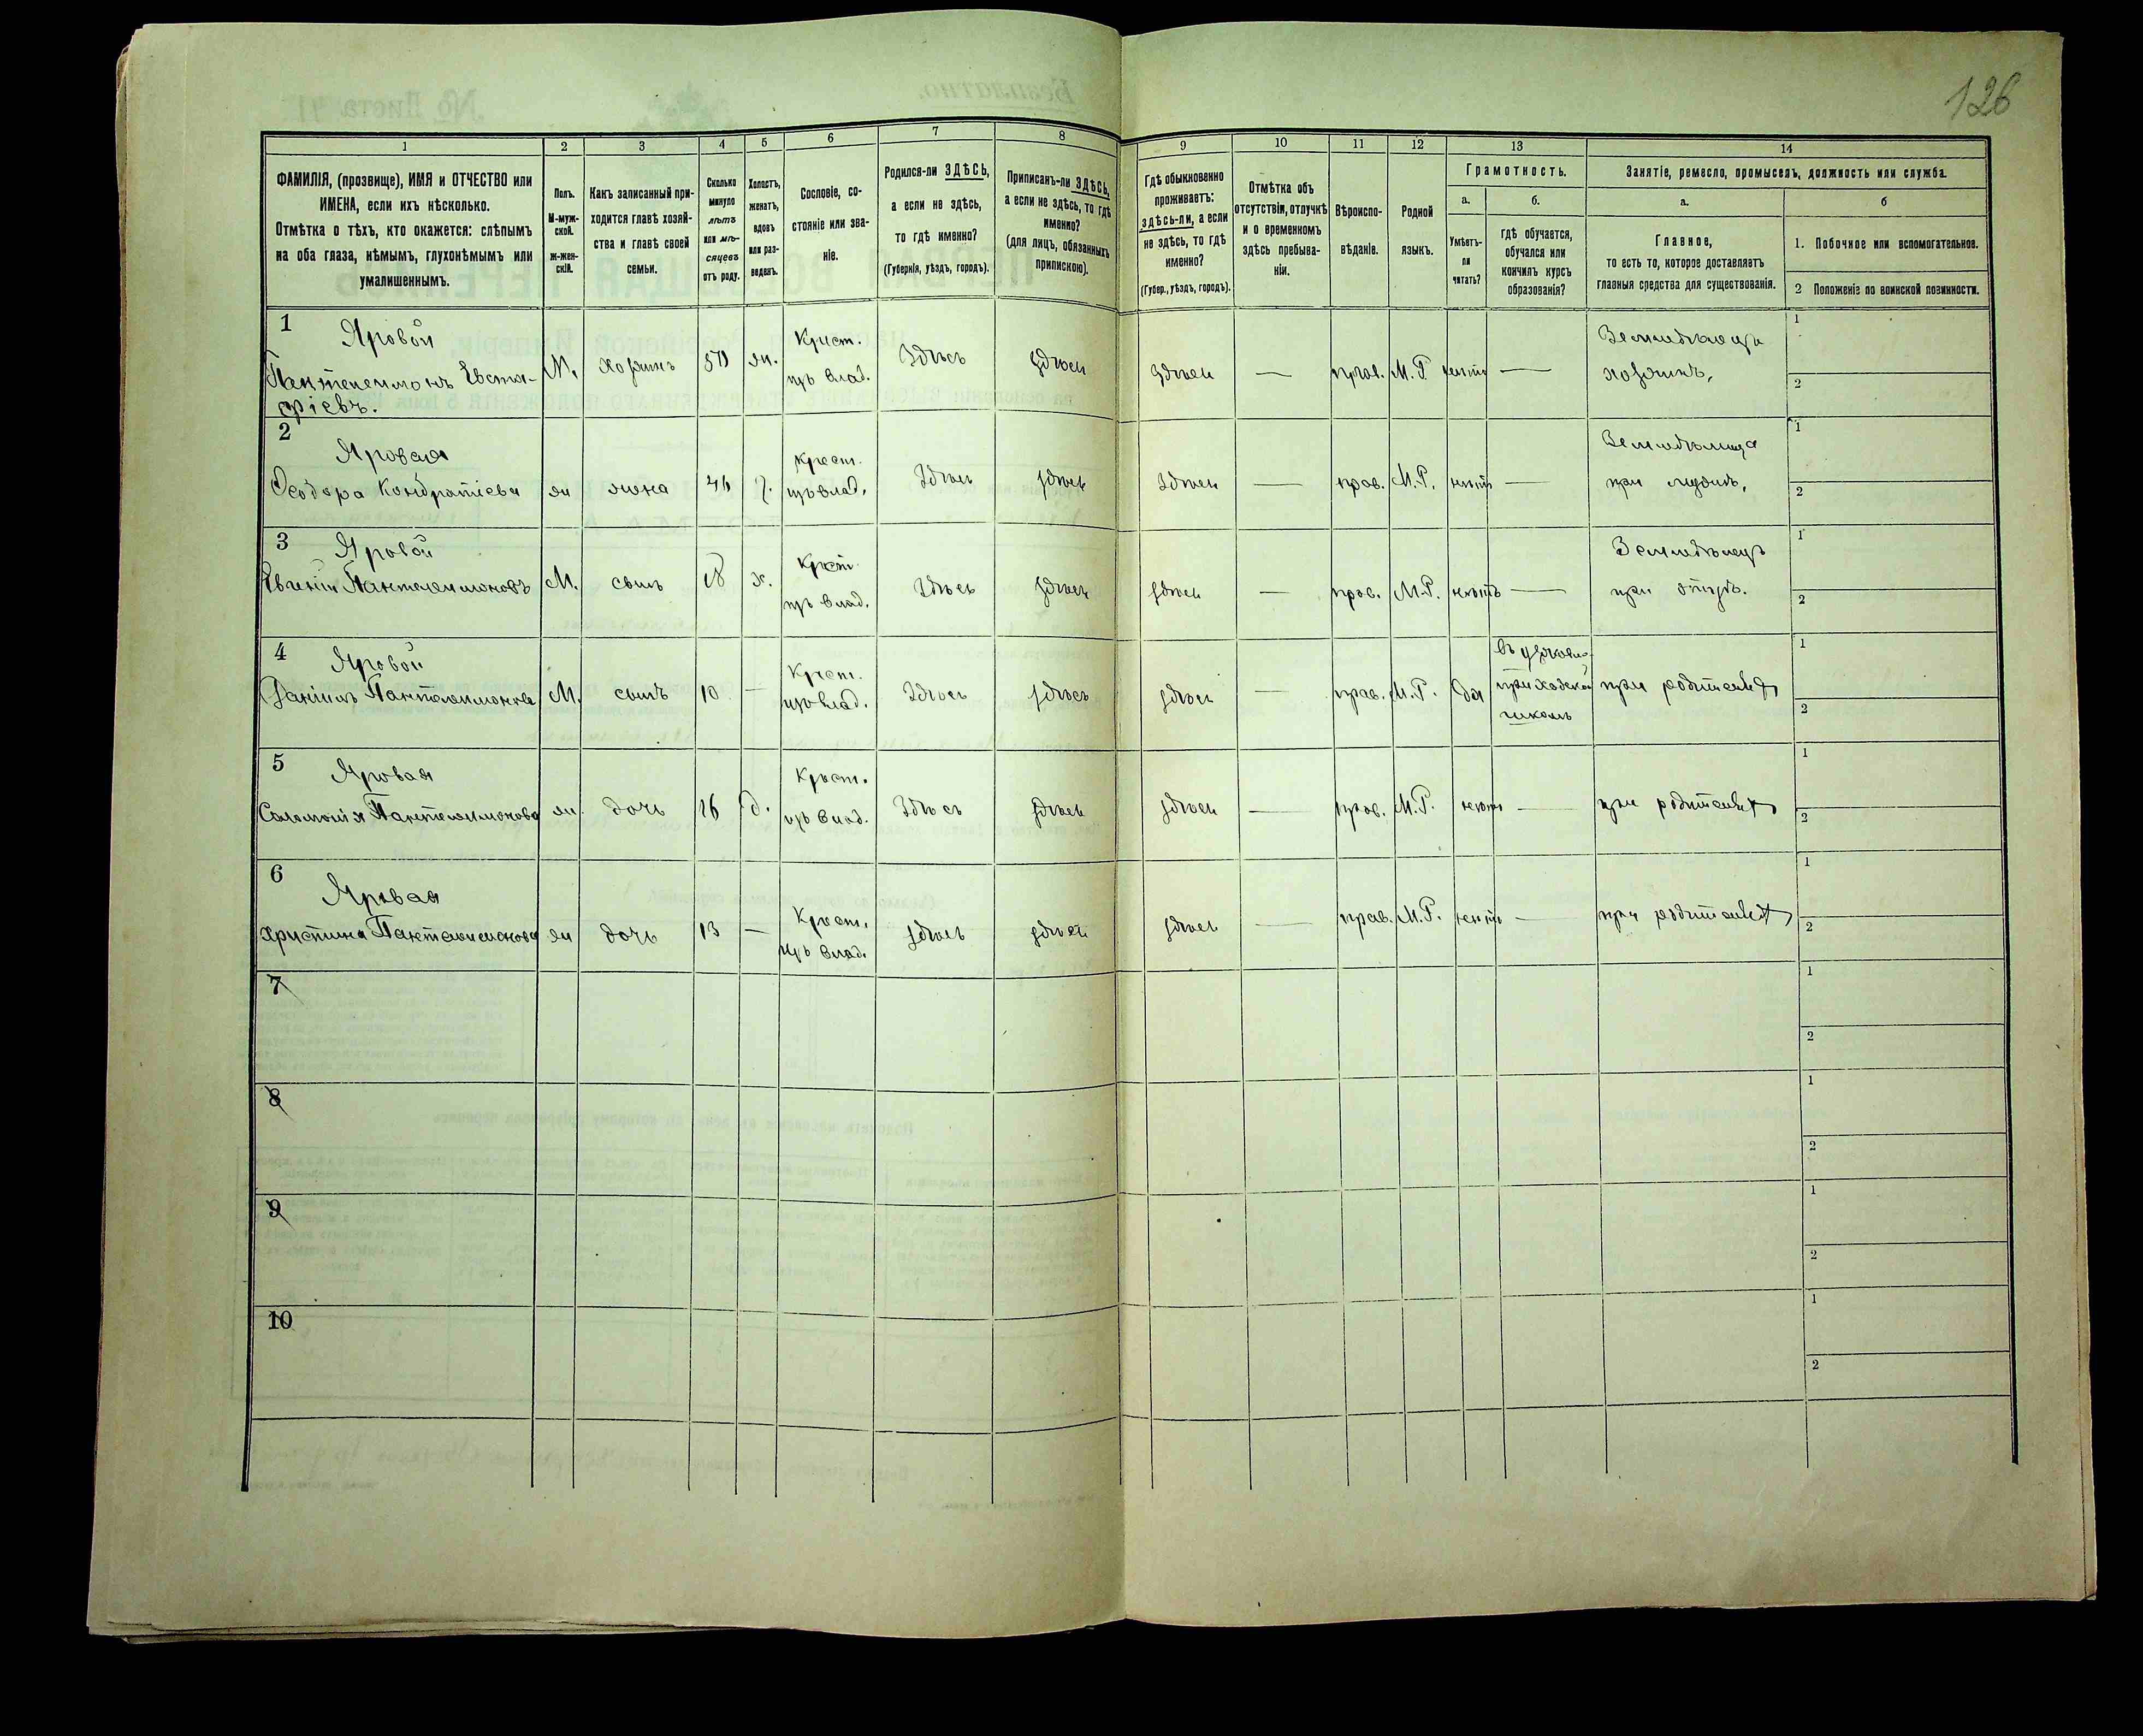 126
1
2
3
4
5
6
7
8
9
10
11
12
13
14
ФАМИЛІЯ, (прозвище), ИМЯ и ОТЧЕСТВО или
ИМЕНА, если ихъ нѣсколько.
Отмѣтка о тѣхъ, кто окажется: слѣпымъ
на оба глаза, нѣмымъ, глухонѣмымъ или
умалишеннымъ.
Полъ.
М-муж-
ской.
ж-жен-
скій.
Какъ записанный при-
ходится главѣ хозяй-
ства и главѣ своей
семьи.
Сколько
минуло
лѣтъ
или мѣ-
сяцевъ
отъ роду.
Холостъ,
женатъ,
вдовъ
или раз-
веденъ.
Сословіе, со-
стояніе или зва-
ніе.
Родился-ли ЗДѢСЬ,
а если не здѣсь,
то гдѣ именно?
(Губернія, уѣздъ, городъ).
Приписанъ-ли ЗДѢСЬ,
а если не здѣсь, то гдѣ
именно?
(для лицъ, обязанныхъ
припискою).
Гдѣ обыкновенно
проживаетъ:
здѣсь-ли, а если
не здѣсь, то гдѣ
именно?
(Губер., уѣздъ, городъ).
Отмѣтка объ
отсутствіи, отлучкѣ
и о временномъ
здѣсь пребыва-
ніи.
Вѣроиспо-
вѣданіе.
Родной
языкъ.
Грамотность.
а.
Умѣетъ-
ли
читать?
б.
гдѣ обучается,
обучался или
кончилъ курсъ
образованія?
Занятіе, ремесло, промыселъ, должность или служба.
а.
Главное,
то есть то, которое доставляетъ
главныя средства для существованія.
б
1. Побочное или вспомогательное.
2 Положеніе по воинской повинности.
1
Яровой
Пантелеимонъ Евста-
фіевъ.
М.
хозяинъ
50
ж.
Крест.
изъ влад.
Здѣсь
здѣсь
здѣсь
—
прав.
М.Р.
нѣтъ
—
хозяинъ,
1
2
2
Яровая
Ѳеодора Кондратіева
ж
жена
46
з.
Крест.
изъ влад.
Здѣсь
здѣсь
Здѣсь
—
прав.
М.Р.
нѣтъ
—
Земледѣлица
при мужѣ,
1
2
3
Яровой
Евгеній Пантелеимоновъ
М.
сынъ
18
х.
Крест.
изъ влад.
Здѣсь
здѣсь
здѣсь
—
прав.
М.Р.
нѣтъ
—
Земледѣлецъ
при отцѣ.
1
2
4
Яровой
Даніилъ Пантелеимоновъ
М.
сынъ
10
—
Крест.
изъ влад.
Здѣсь
здѣсь
здѣсь
—
прав.
М.Р.
да
въ церковно-
приходской
школѣ
при родителяхъ
1
2
5
Яровая
Соломонія Пантелеимонова
ж.
дочь
16
д.
Крест.
изъ влад.
Здѣсь
здѣсь
здѣсь
—
прав.
М.Р.
нѣтъ
—
при родителяхъ
1
2
6
Яровая
Христина Пантелеимонова
ж
дочь
13
—
Крест.
изъ влад.
здѣсь
здѣсь
здѣсь
—
прав.
М.Р.
нѣтъ
—
при родителяхъ
1
2
7
1
2
8
1
2
9
1
2
10
1
2